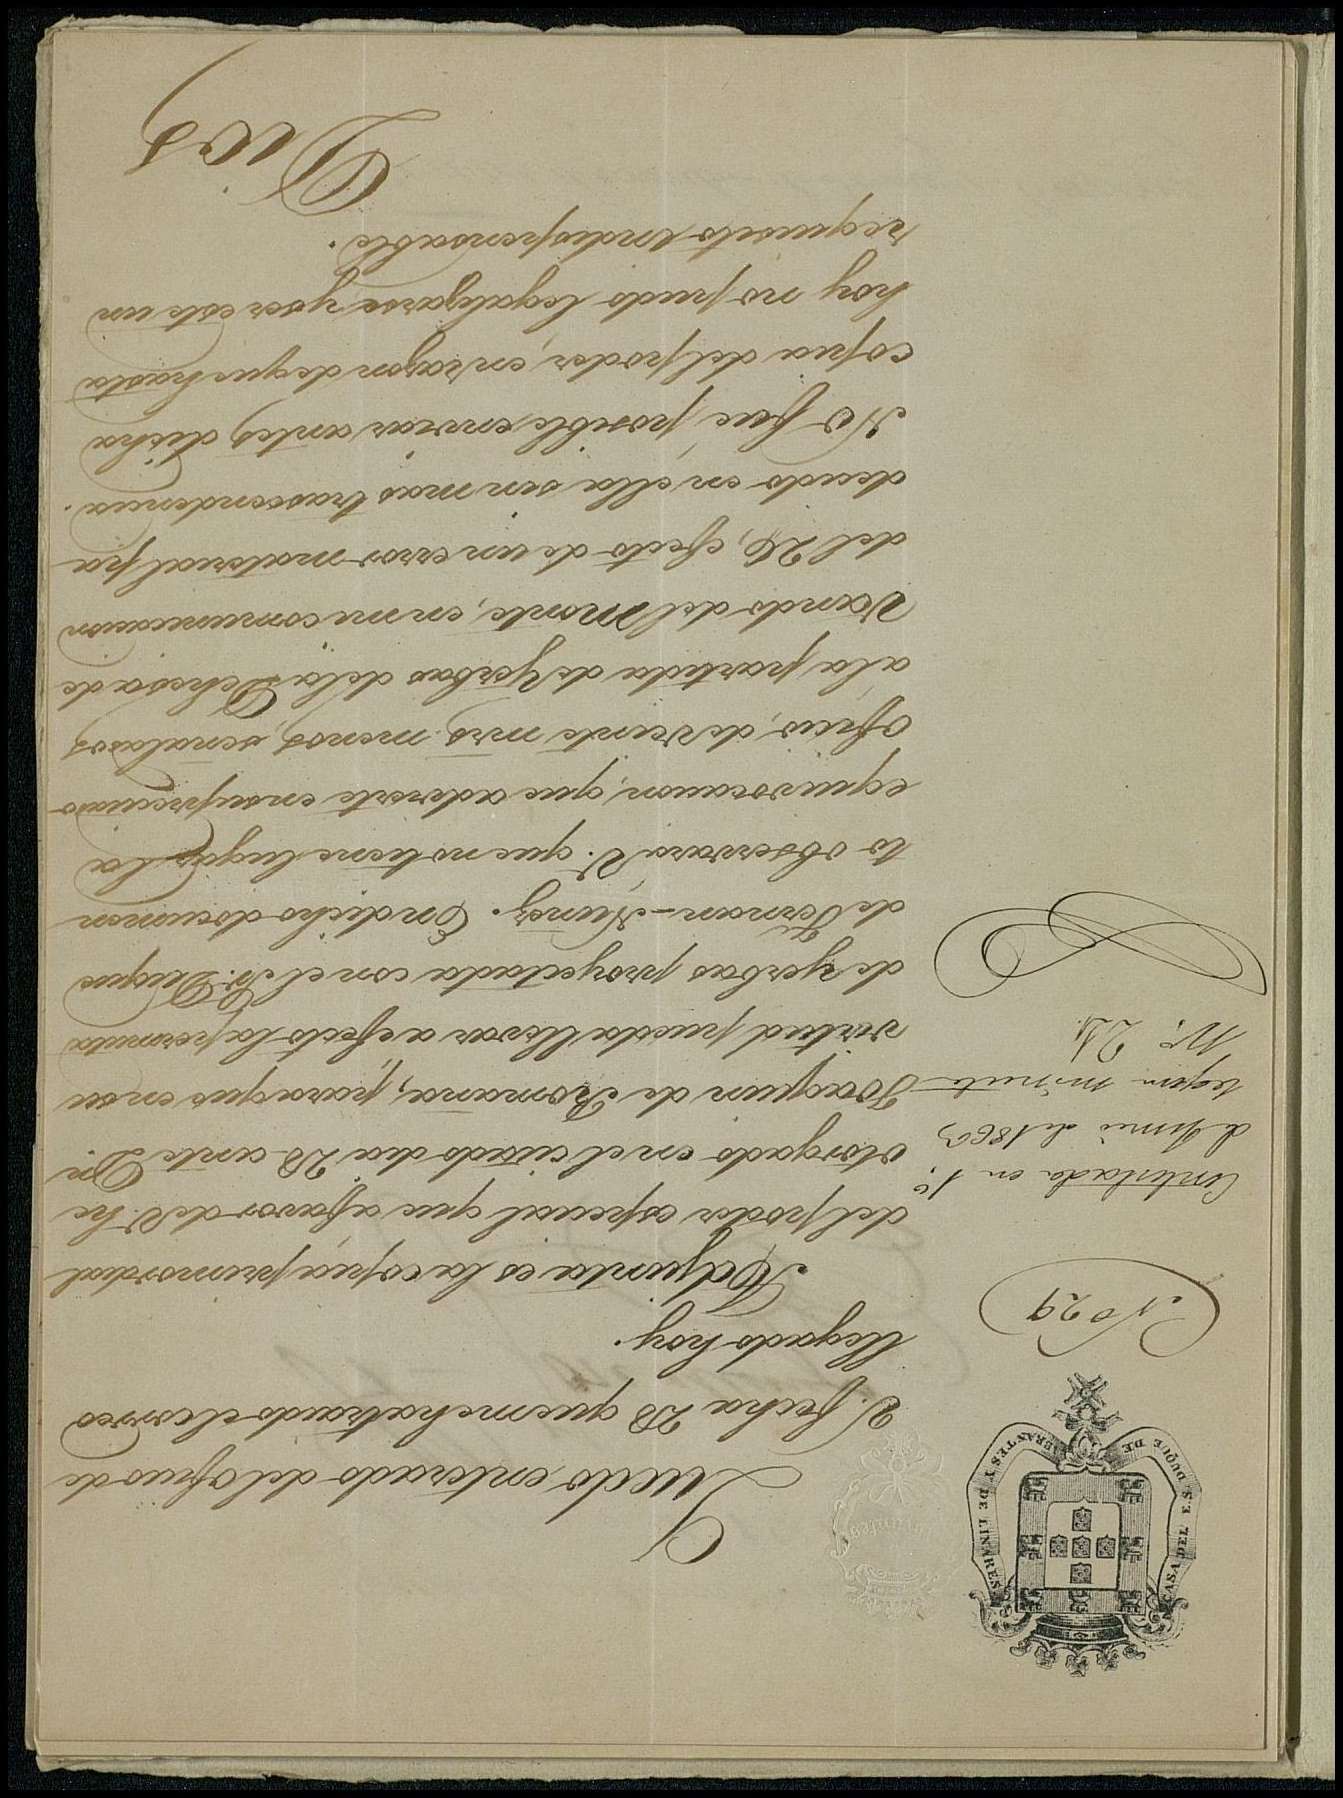 CASA DEL E.S. DUQUE DE ABRANTES Y DE LINARES
Nº 29
Contestada en 1º
de Junio de 1863
segun minuta
Nº 21.
Quedo enterado del oficio de
V. fecha 28 que me ha traido el correo
llegado hoy.
Adjunta es la copia primordial
del poder especial que a favor de V. he
otorgado en el citado dia 28 ante Dn.
Joaquin de Romaña, para que en su
virtud pueda llevar a efecto la permuta
de yerbas proyectada con el Sr. Duque
de Fernan-Nuñez. En dicho documen
to observará V. que no tiene lugar la
equivocacion, que advierte en su preciado
oficio, de veinte mrs. menos, señalados
a la partida de Yerbas de la Dehesa de
Vando del Monte, en mi comunicacion
del 26, efecto de un error material pa
decido en ella sin mas trascendencia.
No fué posible enviar antes dicha
copia del poder, en razon de que hasta
hoy no pudo legalizarse y ser este un
requisito indispensable.
Dios